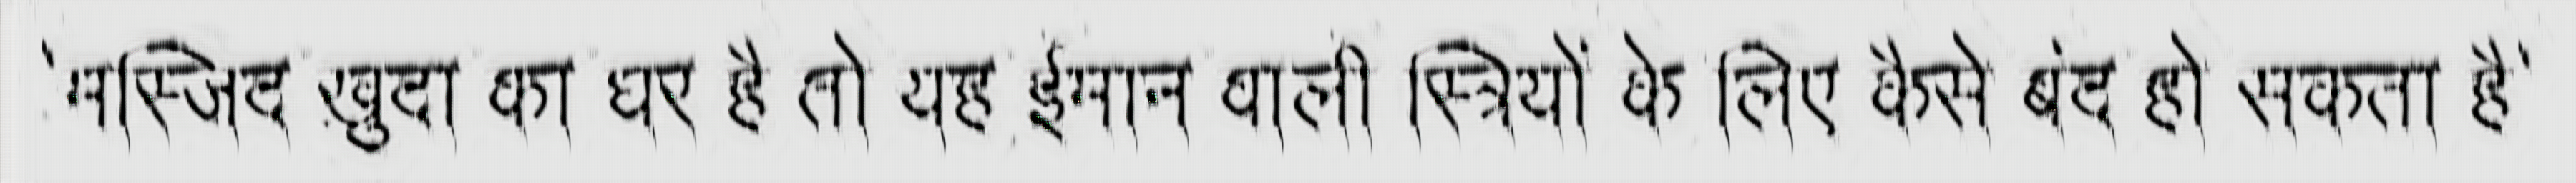 'मस्जिद ख़ुदा का घर है तो यह ईमान वाली स्त्रियों के लिए कैसे बंद हो सकता है'